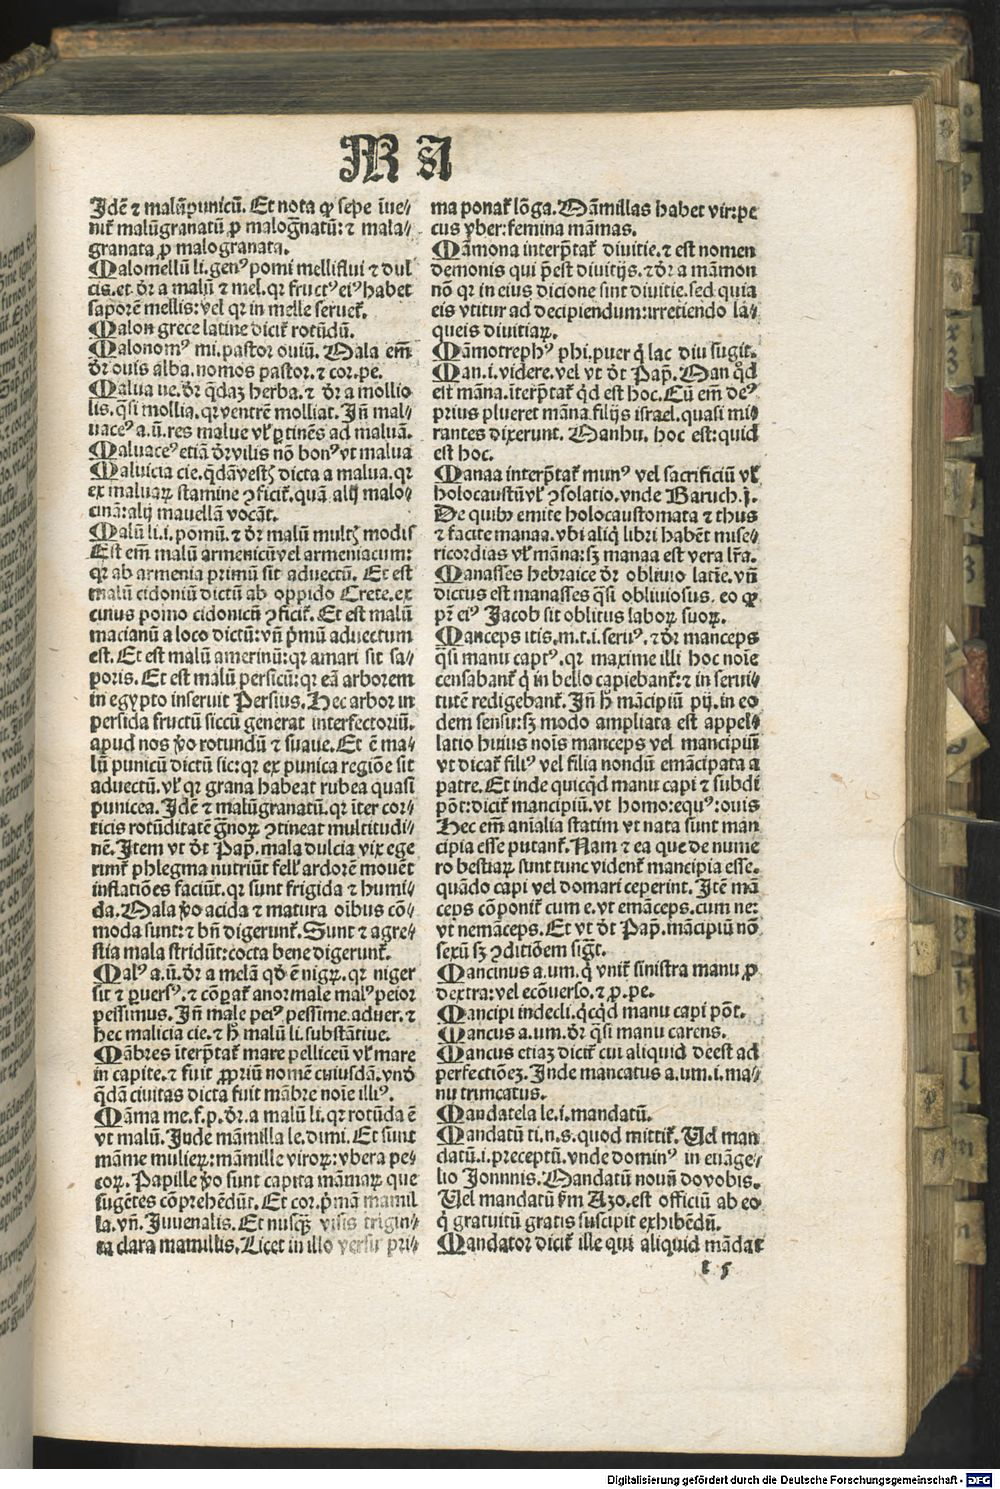 M A
Idē ⁊ malūpunicū. Et nota ꝙ sepe īue⸗
nit᷑ malūgranatū ꝓ malog̅natū: ⁊ mala⸗
granata ꝓ malogranata.
Malomellū li. genꝰ pomi melliflui ⁊ dul
cis. et dr̄ a malū ⁊ mel. qr fructꝰ eiꝰ habet
saporē mellis: vel qr in melle seruet᷑.
Malon grece latine dicit᷑ rotūdū.
Malonomꝰ mi. pastor ouiū. Mala em̄
dr̄ ouis alba. nomos pastor. ⁊ cor. pe.
Malua ue. dr̄ q̄daȝ herba. ⁊ dr̄ a mollio
lis. q̄si mollia. qr ventrē molliat. Jn̄ mal⸗
uaceꝰ a. ū. res malue vl̓ ꝑtinēs ad maluā.
Maluaceꝰ etiā dr̄ vilis nō bonꝰ vt malua
Maluicia cie. q̄dā vestꝭ dicta a malua. qr
ex maluaꝝ stamine ꝯficit᷑. quā alij malo⸗
cinā: alij mauellā vocāt.
Malū li. i. pomū. ⁊ dr̄ malū multꝭ modis
Est em̄ malū armenicū vel armeniacum:
qr ab armenia primū sit aduectū. Et est
malū cidoniū dictū ab oppido Crete. ex
cuius pomo cidonicū ꝯficit᷑. Et est malū
macianū a loco dictū: vn̄ p̄mū aduectum
est. Et est malū amerinū: qr amari sit sa⸗
poris. Et est malū persicū: qr eā arborem
in egypto inseruit Persius. Hec arbor in
persida fructū siccū generat interfectoriū.
apud nos ꝟo rotundū ⁊ suaue. Et ē ma⸗
lū punicū dictū sic: qr ex punica regiōe sit
aduectū. vl̓ qr grana habeat rubea quasi
punicea. Idē ⁊ malūgranatū. qr īter cor⸗
ticis rotūditatē g̅noꝝ ꝯtineat multitudi⸗
nē. Item vt dt̄ Pap̄. mala dulcia vix ege
runt᷑ phlegma nutriūt fell̓ ardorē mouēt
inflatiōes faciūt. qr sunt frigida ⁊ humi⸗
da. Mala ꝟo acida ⁊ matura oībus cō⸗
moda sunt: ⁊ bn̄ digerunt᷑. Sunt ⁊ agre⸗
stia mala stridūt: cocta bene digerunt᷑.
Malꝰ a. ū. dr̄ a melā qd̓ ē nigꝝ. qr niger
sit ⁊ ꝑuersꝰ. ⁊ cōꝑat᷑ anormale malꝰ peior
pessimus. Jn̄ male peiꝰ pessime. aduer. ⁊
hec malicia cie. ⁊ h̄ malū li. substātiue.
Mābres īterp̄tat᷑ mare pelliceū vl̓ mare
in capite. ⁊ fuit ꝓpriū nomē cuiusdā. vnd̓
q̄dā ciuitas dicta fuit mābre noīe illiꝰ.
Māma me. f. p. dr̄. a malū li. qr rotūda ē
vt malū. Inde māmilla le. dimi. Et sunt
māme mulieꝝ: māmille viroꝝ: vbera pe⸗
coꝝ. Papille ꝟo sunt capita māmaꝝ que
sugētes cōprehēdūt. Et cor. p̄mā mamil
la. vn̄. Juuenalis. Et nusqȝ visis trigin⸗
ta clara mamillis. Licet in illo versu pri⸗
ma ponat᷑ lōga. Māmillas habet vir: pe
cus vber: femina māmas.
Māmona interp̄tat᷑ diuitie. ⁊ est nomen
demonis qui p̄est diuitijs. ⁊ dr̄ a māmon
nō qr in eius dicione sint diuitie. sed quia
eis vtitur ad decipiendum: irretiendo la⸗
queis diuitiaꝝ.
Māmotrephꝰ phi. puer q̄ lac diu sugit.
Man. i. videre. vel vt dt̄ Pap̄. Man qd̓
est māna. īterp̄tat᷑ qd̓ est hoc. Cū em̄ deꝰ
prius plueret māna filijs israel. quasi mi⸗
rantes dixerunt. Manhu. hoc est: quid
est hoc.
Manaa interp̄tat᷑ munꝰ vel sacrificiū vl̓
holocaustū vl̓ ꝯsolatio. vnde Baruch. j.
De quibꝰ emite holocaustomata ⁊ thus
⁊ facite manaa. vbi aliq̄ libri habēt mise⸗
ricordias vl̓ māna: sȝ manaa est vera lr̄a.
Manasses hebraice dr̄ obliuio latīe. vn̄
dictus est manasses q̄si obliuiosus. eo ꝙ
pr̄ eiꝰ Jacob sit oblitus laboꝝ suoꝝ.
Manceps itis. m. t. i. seruꝰ. ⁊ dr̄ manceps
q̄si manu captꝰ. qr maxime illi hoc noīe
censabant᷑ q̄ in bello capiebant᷑: ⁊ in serui⸗
tutē redigebant᷑. Jn̄ h̄ mācipiū pij. in eo
dem sensu: sȝ modo ampliata est appel⸗
latio huius noīs manceps vel mancipiū
vt dicat᷑ filiꝰ vel filia nondū emācipata a
patre. Et inde quicqd̓ manu capi ⁊ subdi
pōt: dicit᷑ mancipiū. vt homo: equꝰ: ouis
Hec em̄ anīalia statim vt nata sunt man
cipia esse putant᷑. Nam ⁊ ea que de nume
ro bestiaꝝ sunt tunc vident᷑ mancipia esse.
quādo capi vel domari ceperint. Itē mā
ceps cōponit᷑ cum e. vt emāceps. cum ne:
vt nemāceps. Et vt dt̄ Pap̄. mācipiū nō
sexū sȝ ꝯditiōem sig̅t.
Mancinus a. um. q̄ vnit᷑ sinistra manu ꝓ
dextra: vel ecōuerso. ⁊ ꝓ. pe.
Mancipi indecli. q̄cqd̓ manu capi pōt.
Mancus a. um. dr̄ q̄si manu carens.
Mancus etiaȝ dicit᷑ cui aliquid deest ad
perfectiōeȝ. Inde mancatus a. um. i. ma⸗
nu truncatus.
Mandatela le. i. mandatū.
Mandatū ti. n. s. quod mittit᷑. Vel man
datū. i. preceptū. vnde dominꝰ in euāge⸗
lio Jonnnis. Mandatū nouū do vobis.
Vel mandatū ẜm Azo. est officiū ab eo
q̄ gratuitū gratis suscipit exhibēdū.
Mandator dicit᷑ ille qui aliquid mādat
t 5
Digitalisierung gefördert durch die Deutsche Forschungsgemeinschaft - DFG